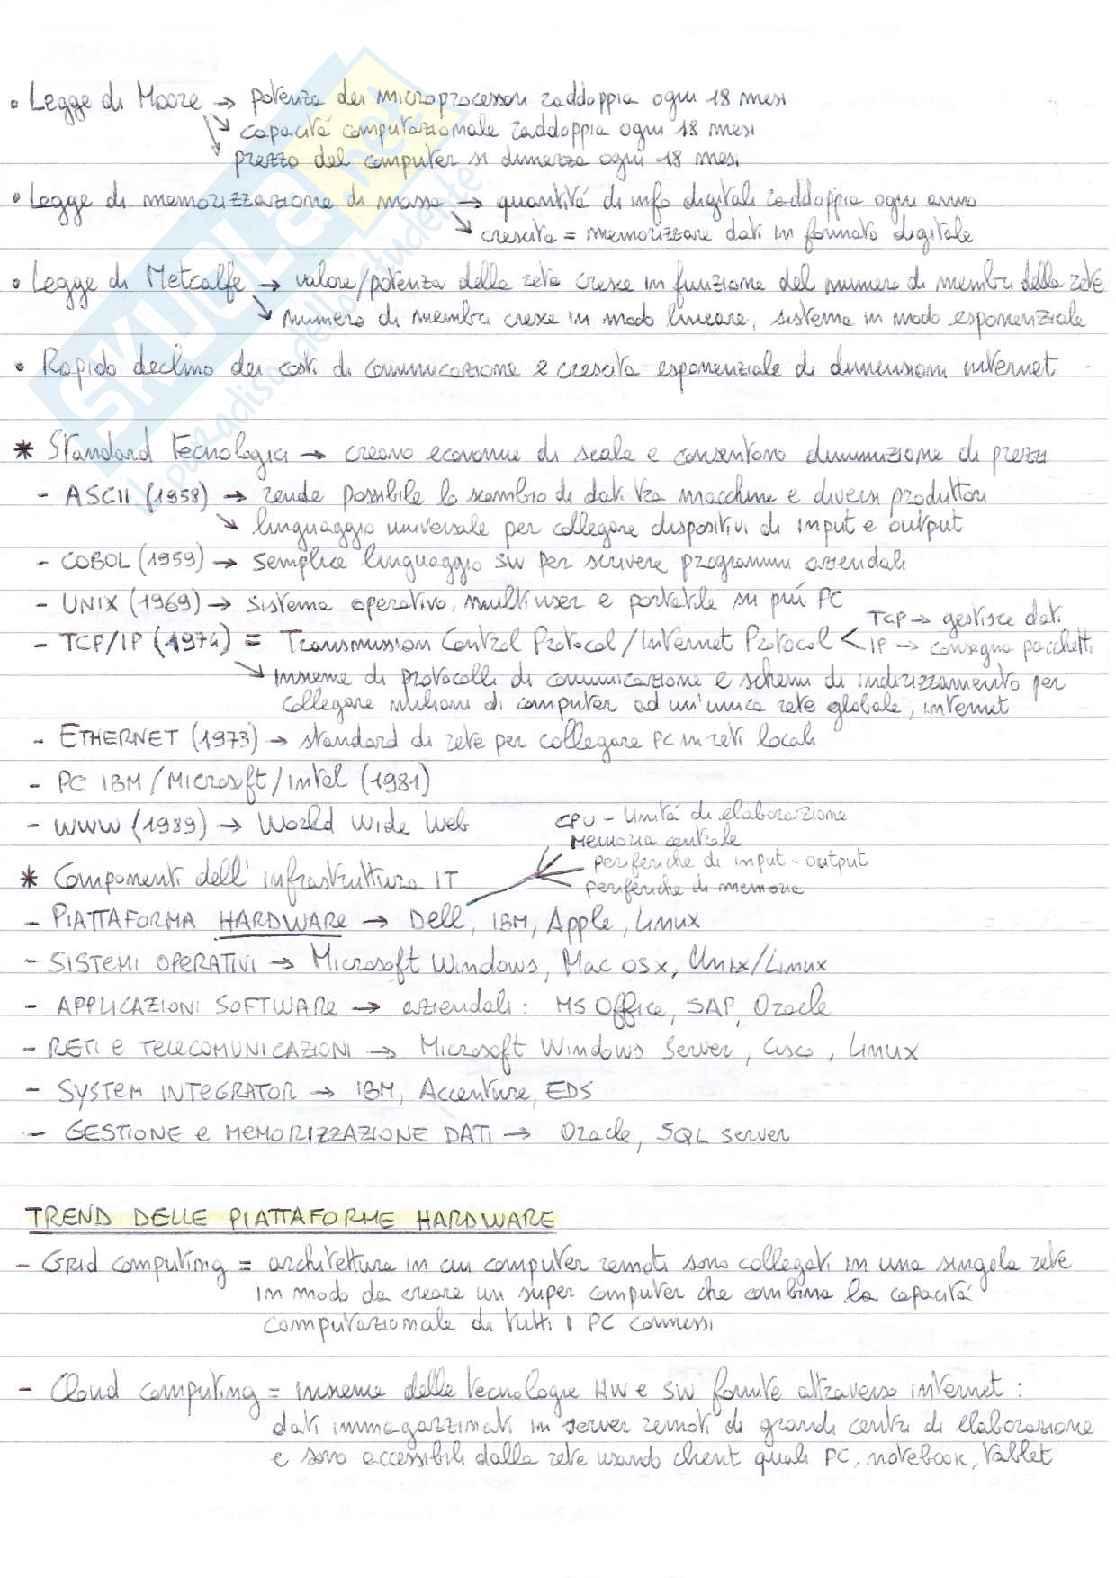 • Legge di Moore → potenza dei microprocessori raddoppia ogni 18 mesi
↘ capacità computazionale raddoppia ogni 18 mesi
↘ prezzo del computer si dimezza ogni 18 mesi
• Legge di memorizzazione di massa → quantità di info digitali raddoppia ogni anno
↘ crescita = memorizzare dati in formato digitale
• Legge di Metcalfe → valore/potenza della rete cresce in funzione del numero di membri della rete
↘ numero di membri cresce in modo lineare, sistema in modo esponenziale
• Rapido declino dei costi di comunicazione e crescita esponenziale di dimensioni internet
* Standard tecnologici → creano economie di scala e consentono diminuzione di prezzi
- ASCII (1958) → rende possibile lo scambio di dati tra macchine e diversi produttori
↘ linguaggio universale per collegare dispositivi di input e output
- COBOL (1959) → semplice linguaggio SW per scrivere programmi aziendali
- UNIX (1969) → sistema operativo multiuser e portatile su più PC
- TCP/IP (1974) = Transmission Control Protocol/Internet Protocol < TCP → gestisce dati
IP → consegna pacchetti
↘ insieme di protocolli di comunicazione e schemi di indirizzamento per
collegare milioni di computer ad un'unica rete globale, internet
- ETHERNET (1973) → standard di rete per collegare PC in reti locali
- PC IBM/Microsoft/Intel (1981)
- WWW (1989) → World Wide Web
CPU - Unità di elaborazione
Memoria centrale
periferiche di input-output
periferiche di memoria
* Componenti dell'infrastruttura IT
- PIATTAFORMA HARDWARE → Dell, IBM, Apple, Linux
- SISTEMI OPERATIVI → Microsoft Windows, Mac OSX, Unix/Linux
- APPLICAZIONI SOFTWARE → aziendali: MS Office, SAP, Oracle
- RETI e TELECOMUNICAZIONI → Microsoft Windows Server, Cisco, Linux
- SYSTEM INTEGRATOR → IBM, Accenture, EDS
- GESTIONE e MEMORIZZAZIONE DATI → Oracle, SQL server
TREND DELLE PIATTAFORME HARDWARE
- Grid computing = architettura in cui computer remoti sono collegati in una singola rete
in modo da creare un super computer che combina la capacità
computazionale di tutti i PC connessi
- Cloud computing = insieme delle tecnologie HW e SW fornite attraverso internet:
dati immagazzinati in server remoti di grandi centri di elaborazione
e sono accessibili dalla rete usando client quali PC, notebook, tablet
SKUOLA.net
il paradiso dello studente